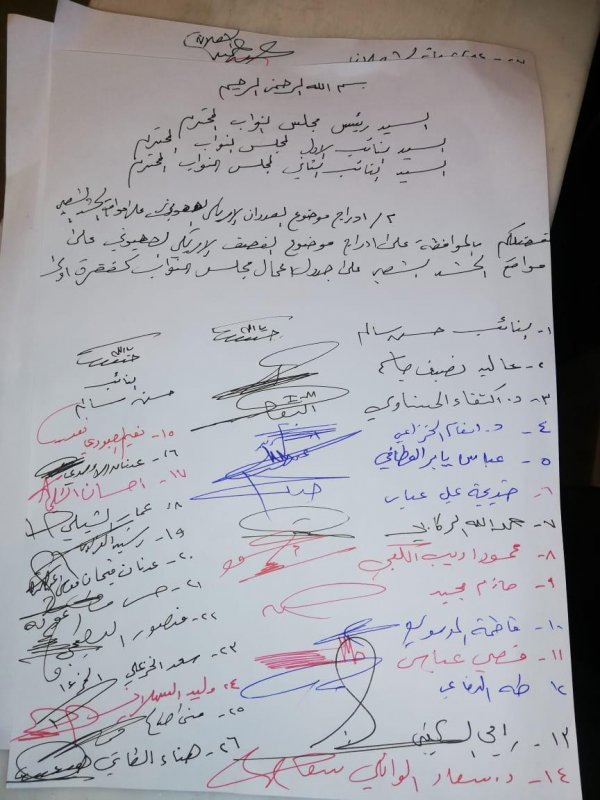 بسم الله الرحمن الرحيم
السيد رئيس مجلس النواب المحترم
السيد النائب الاول لمجلس النواب المحترم
السيد النائب الثاني لمجلس النواب المحترم
م / ادراج موضوع العدوان الامريكي الصهيوني على مواقع الحشد الشعبي
تفضلكم بالموافقة على ادراج موضوع القصف الامريكي الصهيوني على
مواقع الحشد الشعبي على جدول اعمال مجلس النواب كفقرة اولى
١- النائب حسن سالم
٢- عالية نصيف جاسم
٣- د. اكتفاء الحسناوي
٤- د. انعام الخزاعي
٥- عباس يابر العطافي
٦- خديجة علي عباس
٧- عبد الله الركابي
٨- محمود اديب الكعبي
٩- حازم مجيد
١٠- فاطمة الموسوي
١١- قصي عباس
١٢- طه الدفاعي
١٣- رامي السكيني
١٤- د. سعاد الوائلي
النائب
حسن سالم
١٥- نعيم العبودي
١٦- عدنان الاسدي
١٧- احسان
١٨- عمار الشبلي
١٩- رشيد
٢٠- عدنان فيحان
٢١- حسن
٢٢- منصور البعيجي
٢٣- سعد الخزعلي
٢٤- وليد السهلاني
٢٥- منى
٢٦- هناء الطائي